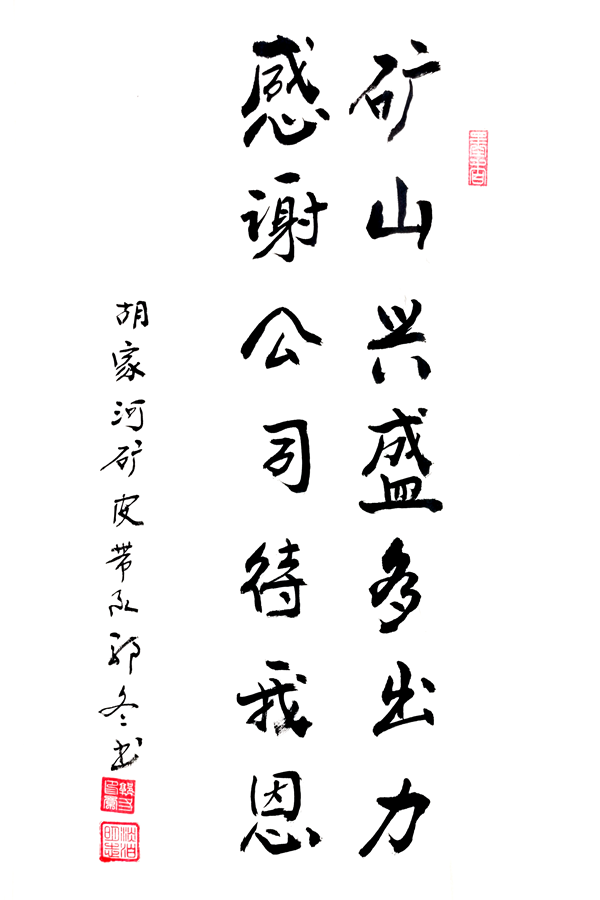 矿山兴盛多出力
感谢公司待我恩
胡家河矿皮带队郭冬书
淡泊明志